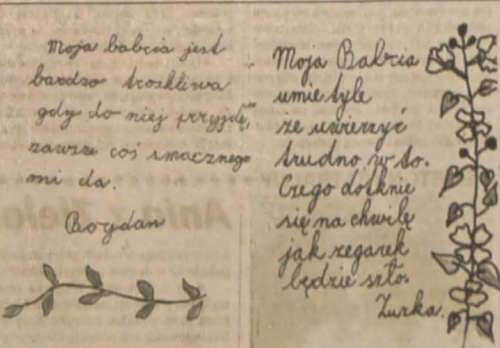 Moja babcia jest
bardzo troskliwa
gdy do niej przyjdę,
zawsze coś smacznego
mi da.
Bogdan
Moja Babcia
umie tyle
że uwierzyć
trudno w to.
Czego dotknie
się na chwilę
jak zegarek
będzie szło.
Zurka.